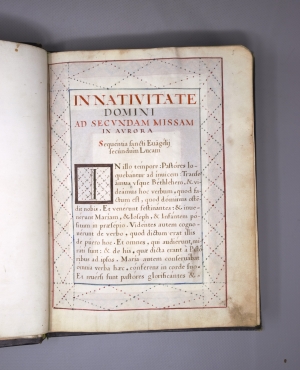 IN NATIVITATE
DOMINI
AD SECVNDAM MISSAM
IN AVRORA
Sequentia sancti Euāgelij
secundum Lucam
IN illo tempore: Pastores lo-
quebantur ad inuicem: Transe
amus vsque Bethlehem, & vi-
deamus hoc verbum, quod fa-
ctum est, quod dominus osten
dit nobis. Et venerunt festinantes: & inue
nerunt Mariam, & Ioseph, & Infantem po-
situm in præsepio. Videntes autem cogno-
uerunt de verbo, quod dictum erat illis
de puero hoc. Et omnes, qui audierunt, mi
rati sunt: & de his, quæ dicta erant à Pasto
ribus ad ipsos. Maria autem conseruabat
omnia verba hæc, conferens in corde suo.
Et reuersi sunt pastores glorificantes &